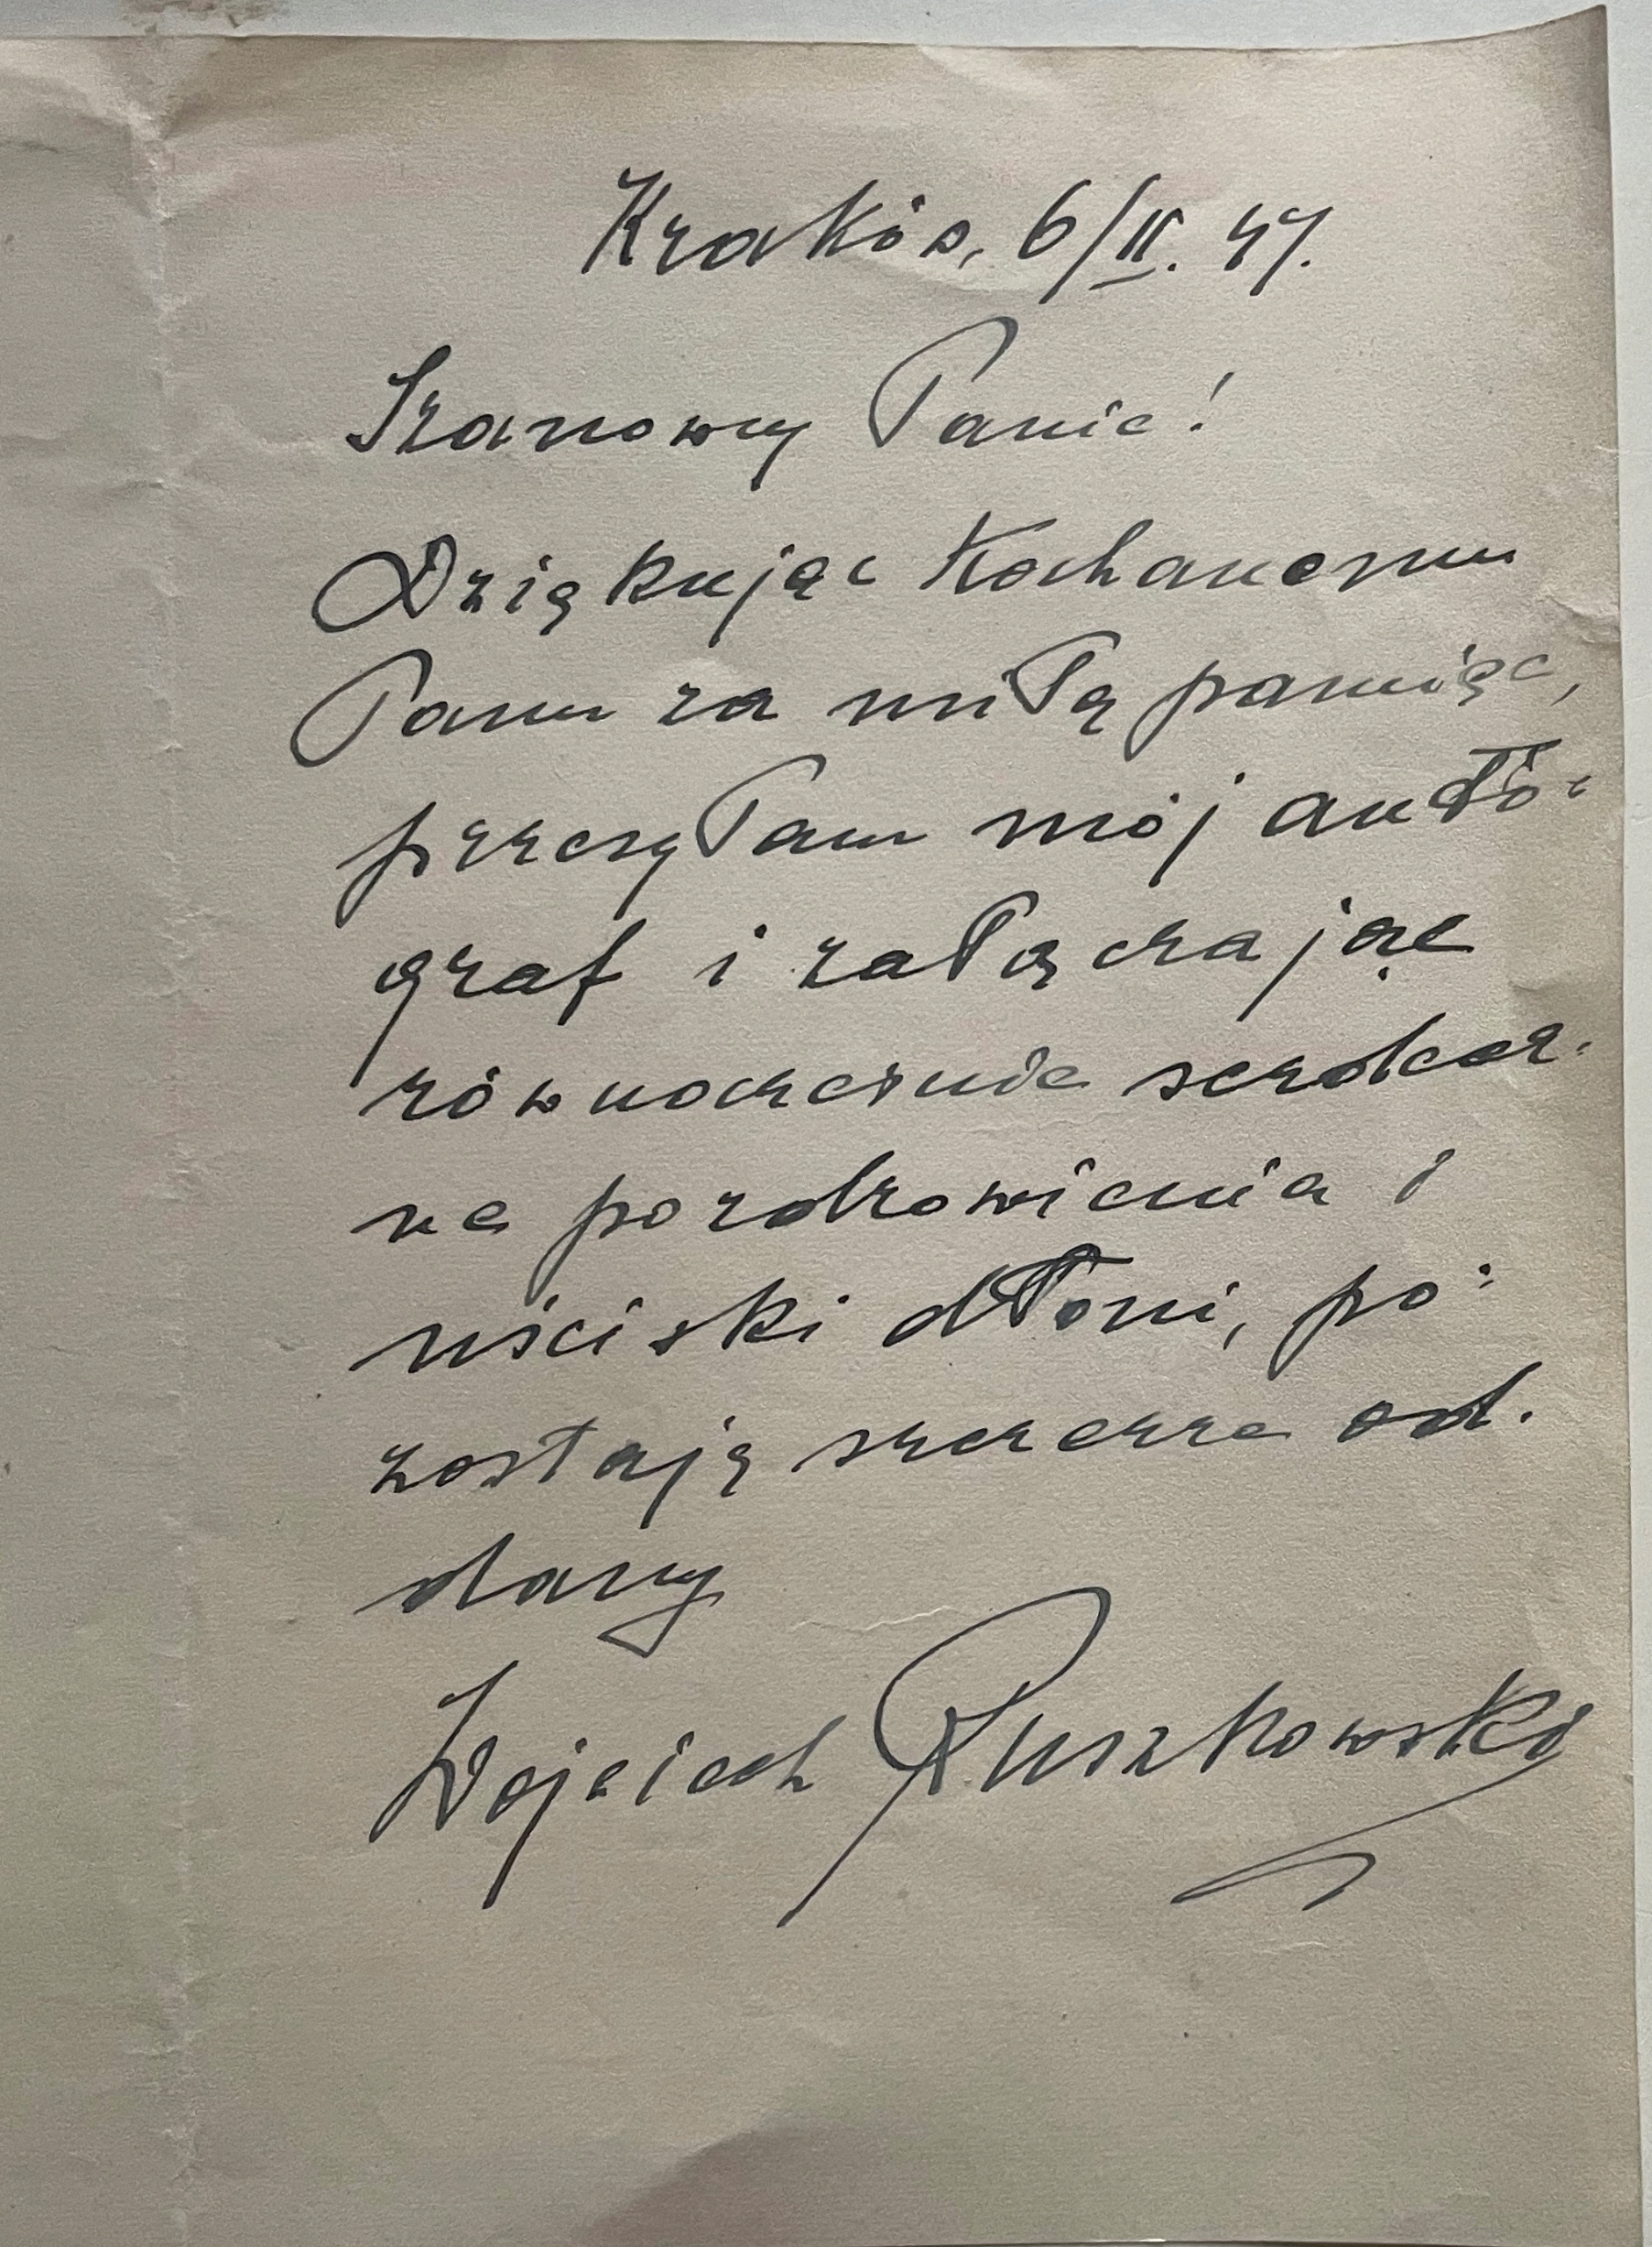 Kraków, 6/II. 47.
Szanowny Panie!
Dziękując Kochanemu
Panu za miłą pamięć,
przesyłam mój auto-
graf i załączając
równocześnie serdecz-
ne pozdrowienia i
uściski dłoni, po-
zostaję szczerze od-
dany
Wojciech Ruszkowski